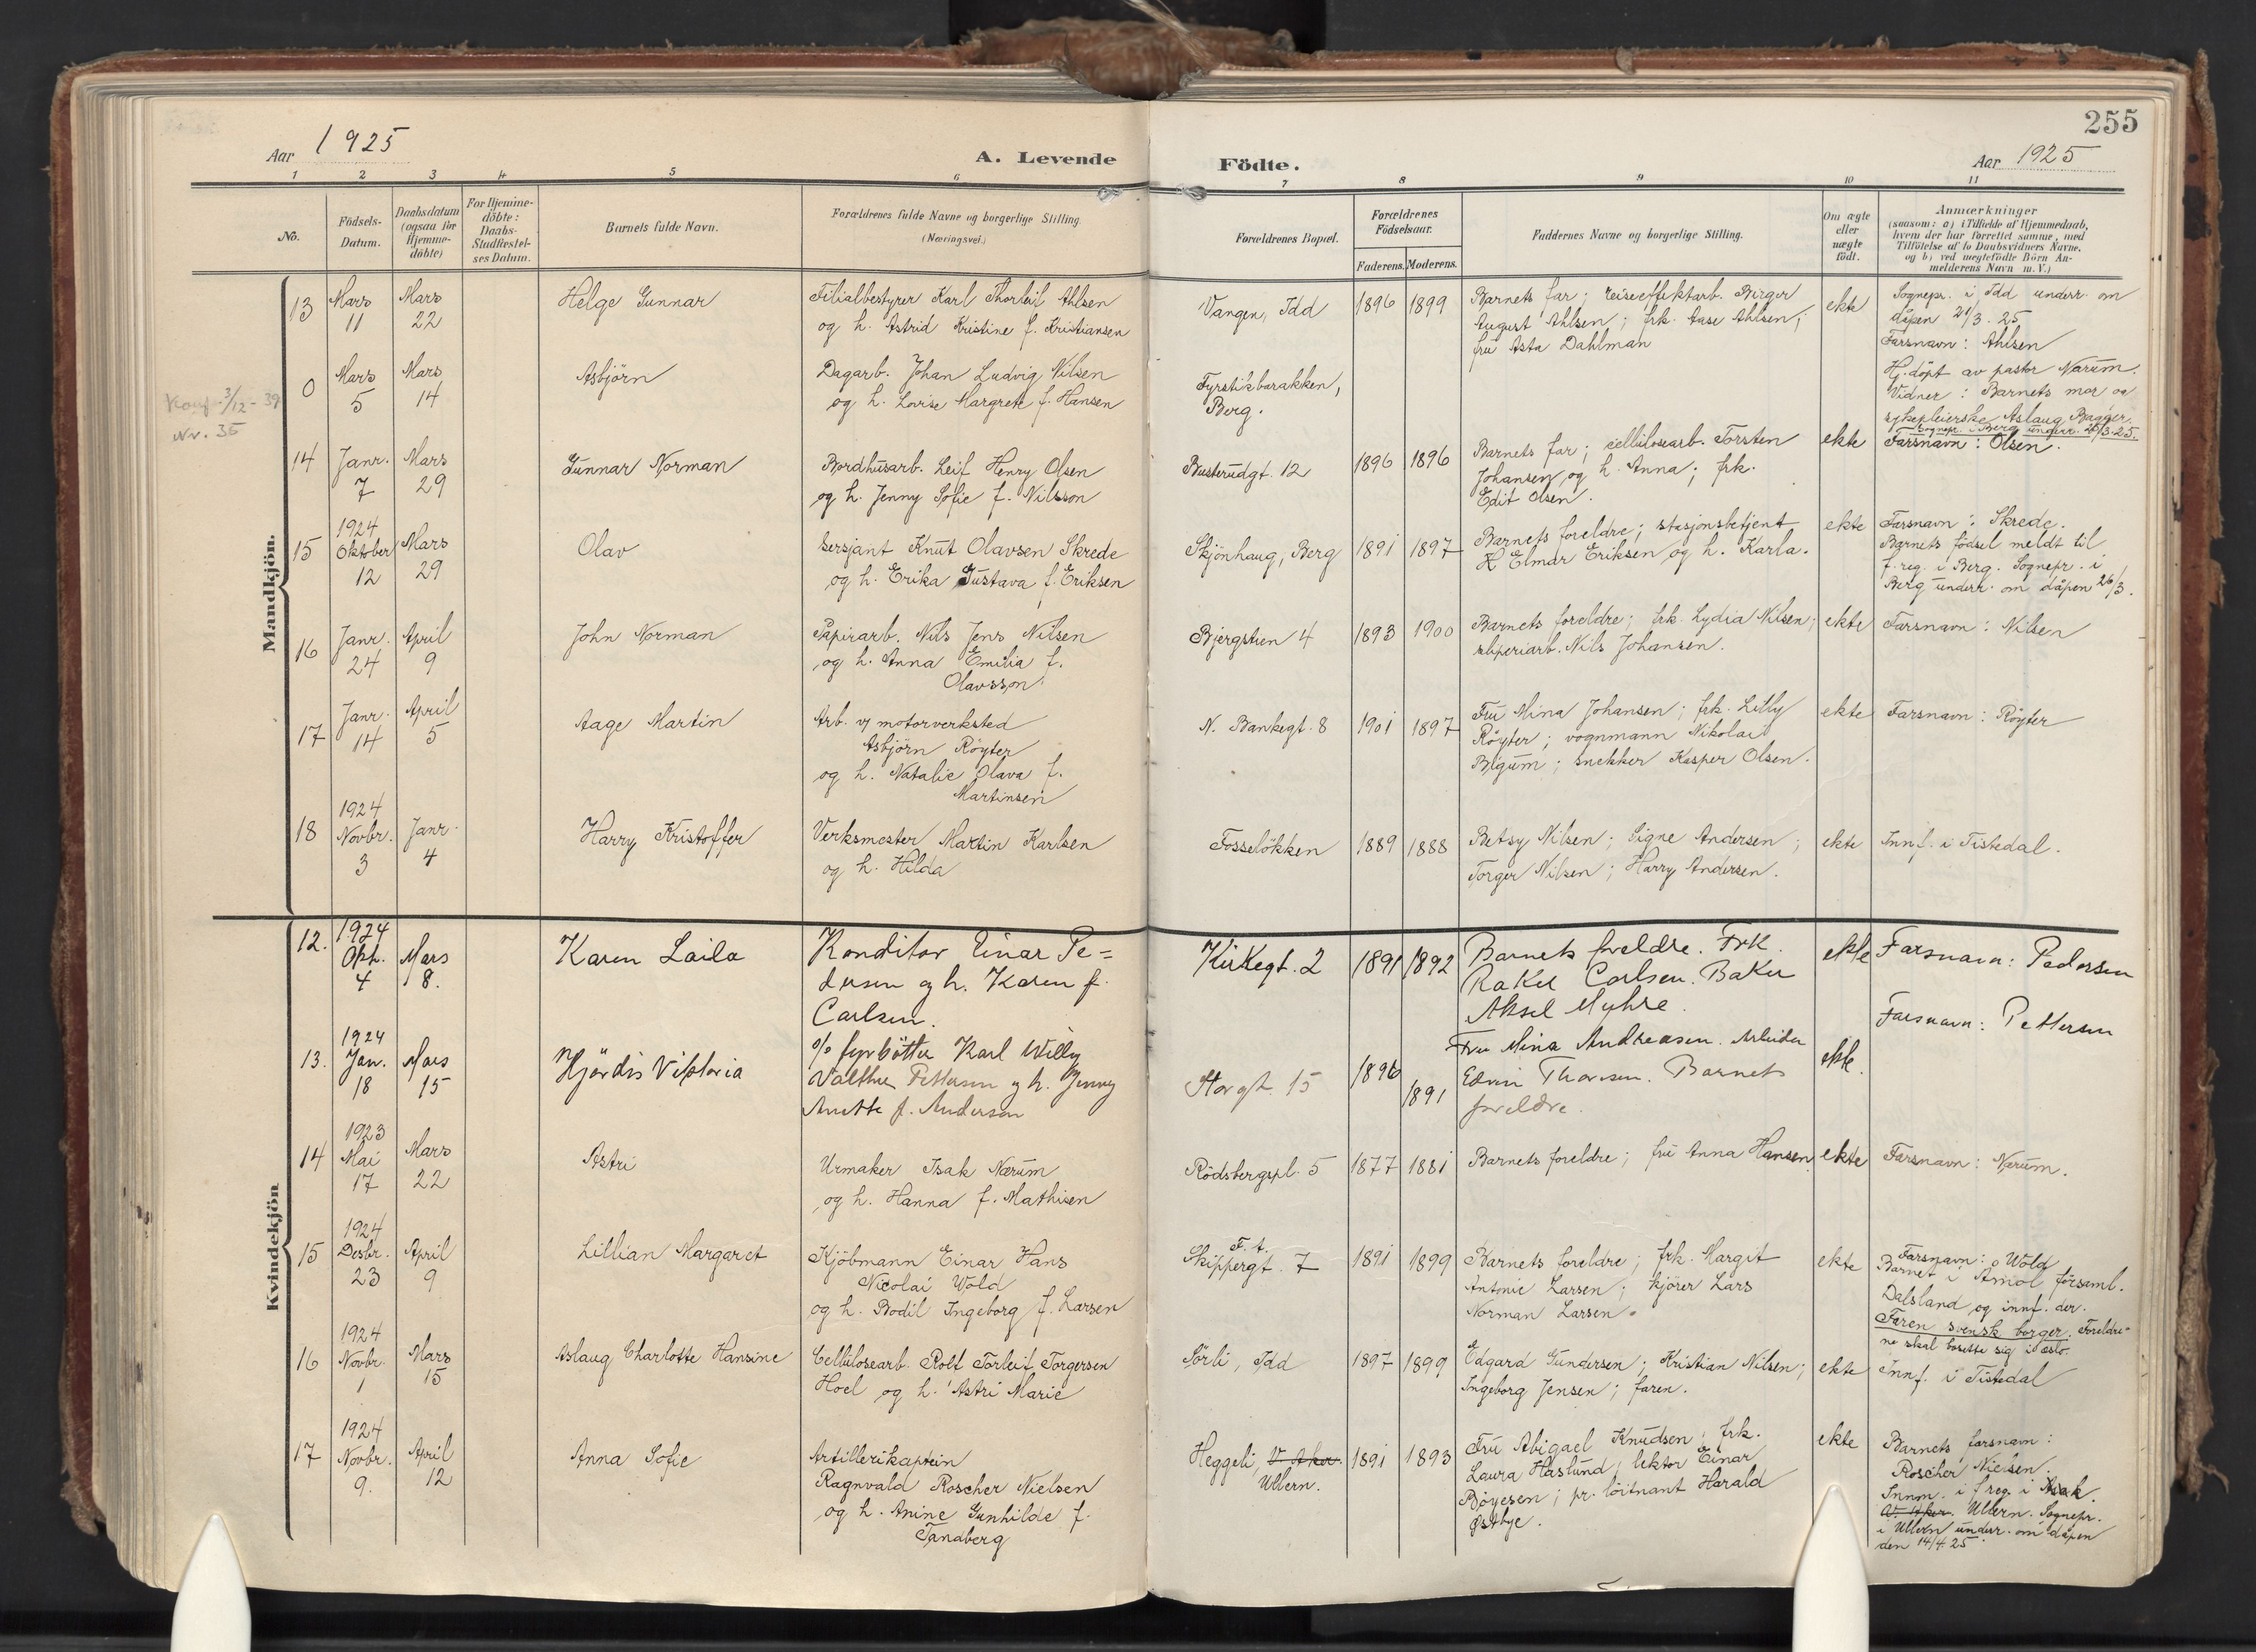 255
Aar 1925
A. Levende
Födte.
Aar 1925
1 2 3 4 5 6 7 8 9 10 11
No.
Födsels-
Datum.
Daabsdatum
(ogsaa for
Hjemme-
döbte)
For Hjemme-
döbte:
Daabs-
Stadfæstel-
ses Datum.
Barnets fulde Navn.
Forældrenes fulde Navne og borgerlige Stilling.
(Næringsvei.)
Forældrenes Bopæl.
Forældrenes
Födselsaar.
Faderens. Moderens.
Faddernes Navne og borgerlige Stilling.
Om ægte
eller
uægte
födt.
Anmærkninger
(saasom: a) i Tilfælde af Hjemmedaab,
hvem der har forrettet samme, med
Tilföielse af to Daabsvidners Navne,
og b) ved uægtefödte Börn An-
melderens Navn m. V.)
Mandkjön.
13
Mars
11
Mars
22
Helge Gunnar
Filialbestyrer Karl Thorleif Ahlsen
og h. Astrid Kristine f. Kristiansen
Vangen, Idd
1896 1899
Barnets far; reiseeffektarb. Birger
August Ahlsen; frk. Aase Ahlsen;
fru Asta Dahlman
ekte
Sognepr. i Idd underr. om
dåpen 21/3. 25
Farsnavn: Ahlsen
Konf. 3/12-39
Nr. 35
0
Mars
5
Mars
14
Asbjörn
Dagarb. Johan Ludvig Nilsen
og h. Lovise Margrete f. Hansen
Fyrstikbarakken,
Berg.
Hj. döpt av pastor Nærum.
Vidner: Barnets mor og
sykepleierske Aslaug Bagger.
Sognepr. i Berg underr. 26/3-25.
14
Janr.
7
Mars
29
Gunnar Norman
Bordhusarb. Leif Henry Olsen
og h. Jenny Sofie f. Nilsson
Busterudgt. 12
1896 1896
Barnets far; cellulosearb. Torsten
Johansen og h. Anna; frk.
Edit Olsen.
ekte
Farsnavn: Olsen.
15
1924
Oktober
12
Mars
29
Olav
Sersjant Knut Olavsen Skrede
og h. Erika Gustava f. Eriksen
Skjönhaug, Berg
1891 1897
Barnets foreldre; stasjonsbetjent
K Elmar Eriksen og h. Karla.
ekte
Farsnavn: Skrede.
Barnets födsel meldt til
f. reg. i Berg. Sognepr. i
Berg underr. om dåpen 26/3.
16
Janr.
24
April
9
John Norman
Papirarb. Nils Jens Nilsen
og h. Anna Emilia f.
Olavsson
Bjergstien 4
1893 1900
Barnets foreldre; frk. Lydia Nilsen;
sliperiarb. Nils Johansen.
ekte
Farsnavn: Nilsen
17
Janr.
14
April
5
Aage Martin
Arb. v/ motorverksted
Asbjörn Röyter
og h. Natalie Olava f.
Martinsen
N. Bankegt. 8
1901 1897
Fru Mina Johansen; frk. Lilly
Röyter; vognmann Nikolai
Bigum; snekker Kasper Olsen.
ekte
Farsnavn: Röyter
18
1924
Novbr.
3
Janr.
4
Harry Kristoffer
Verksmester Martin Karlsen
og h. Hilda
Fosselökken
1889 1888
Betsy Nilsen; Signe Andersen;
Torger Nilsen; Harry Andersen.
ekte
Innf. i Tistedal.
Kvindekjön
12.
1924
Okt.
4
Mars
8.
Karen Laila
Konditor Einar Pe=
dersen og h. Karen f.
Carlsen.
Kirkegt. 2
1891 1892
Barnets foreldre. Frk.
Rakel Carlsen. Baker
Aksel Myhre.
ekte
Farsnavn: Pedersen
13.
1924
Jan.
18
Mars
15
Hjördis Viktoria
Fyrböter Karl Willy
Valther Pettersen og h. Jenny
Anette f. Andersen
Storgt. 15
1896
1891
Fru Mina Andreasen. Arbeider
Edvin Thoresen. Barnets
foreldre.
ekte.
Farsnavn: Pettersen
14
1923
Mai
17
Mars
22
Astri
Urmaker Isak Nærum
og h. Hanna f. Mathisen
Rödsbergspl. 5
1877 1881
Barnets foreldre; fru Anna Hansen
ekte
Farsnavn: Nærum.
15
1924
Desbr.
23
April
9
Lillian Margaret
Kjöbmann Einar Hans
Nicolai Wold
og h. Bodil Ingeborg f. Larsen
F. t.
Skippergt. 7
1891 1899
Barnets foreldre; frk. Margit
Antonie Larsen; kjörer Lars
Norman Larsen.
ekte
Farsnavn: Wold
Barnet i Åmål församl.
Dalsland og innf. der.
Faren svensk borger. Foreldre=
ne skal bosette sig i Oslo.
16
1924
Novbr.
1
Mars
15
Aslaug Charlotte Hansine
Cellulosearb. Rolf Torleif Torgersen
Hoel og h. Astri Marie
Sörli, Idd
1897 1899
Edgard Gundersen; Kristian Nilsen;
Ingeborg Jensen; faren.
ekte
Innf. i Tistedal
17
1924
Novbr.
9.
April
12
Anna Sofie
Artillerikaptein
Ragnvald Roscher Nielsen
og h. Anine Gunhilde f.
Tandberg
Heggeli, V. Aker.
Ullern.
1891 1893
Fru Abigael Knudsen; frk.
Laura Haslund; lektor Einar
Böyesen; pr. löitnant Harald
Østbye.
ekte
Barnets farsnavn:
Roscher Nielsen.
Innm. i f reg. i
V. Aker. Ullern. Sognepr.
i Ullern underr. om dåpen
den 14/4 25.